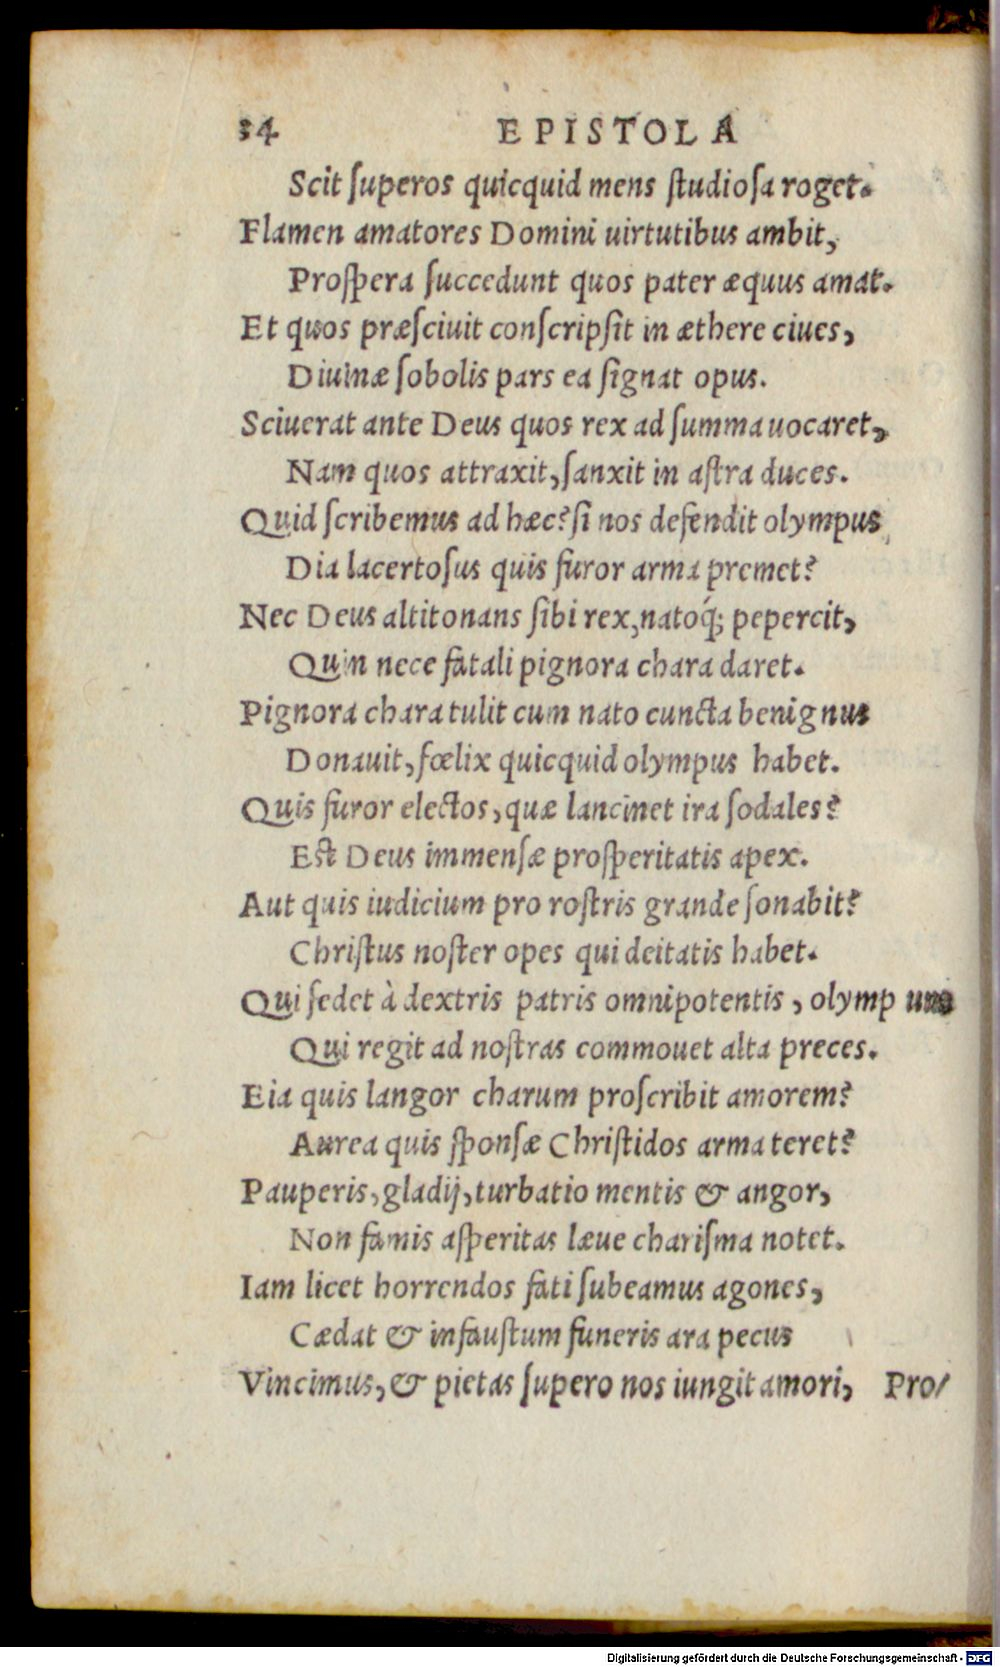 34 EPISTOLA
Scit ſuperos quicquid mens ſtudioſa roget.
Flamen amatores Domini uirtutibus ambit,
Proſpera ſuccedunt quos pater æquus amat.
Et quos præſciuit conſcripſit in æthere ciues,
Diuinæ ſobolis pars ea ſignat opus.
Sciuerat ante Deus quos rex ad ſumma uocaret,
Nam quos attraxit, ſanxit in aſtra duces.
Quid ſcribemus ad hæc? ſi nos defendit olympus,
Dia lacertoſus quis furor arma premet?
Nec Deus altitonans ſibi rex, natoq́; pepercit,
Quin nece fatali pignora chara daret.
Pignora chara tulit cum nato cuncta benignus
Donauit, fœlix quicquid olympus habet.
Quis furor electos, quæ lancinet ira ſodales?
Eſt Deus immenſæ proſperitatis apex.
Aut quis iudicium pro roſtris grande ſonabit?
Chriſtus noſter opes qui deitatis habet.
Qui ſedet à dextris patris omnipotentis, olymp
Qui regit ad noſtras commouet alta preces.
Eia quis langor charum proſcribit amorem?
Aurea quis ſponſæ Chriſtidos arma teret?
Pauperis, gladij, turbatio mentis & angor,
Non famis aſperitas læue chariſma notet.
Iam licet horrendos fati ſubeamus agones,
Cædat & infauſtum funeris ara pecus
Vincimus, & pietas ſupero nos iungit amori, Pro/
Digitalisierung gefördert durch die Deutsche Forschungsgemeinschaft - DFG